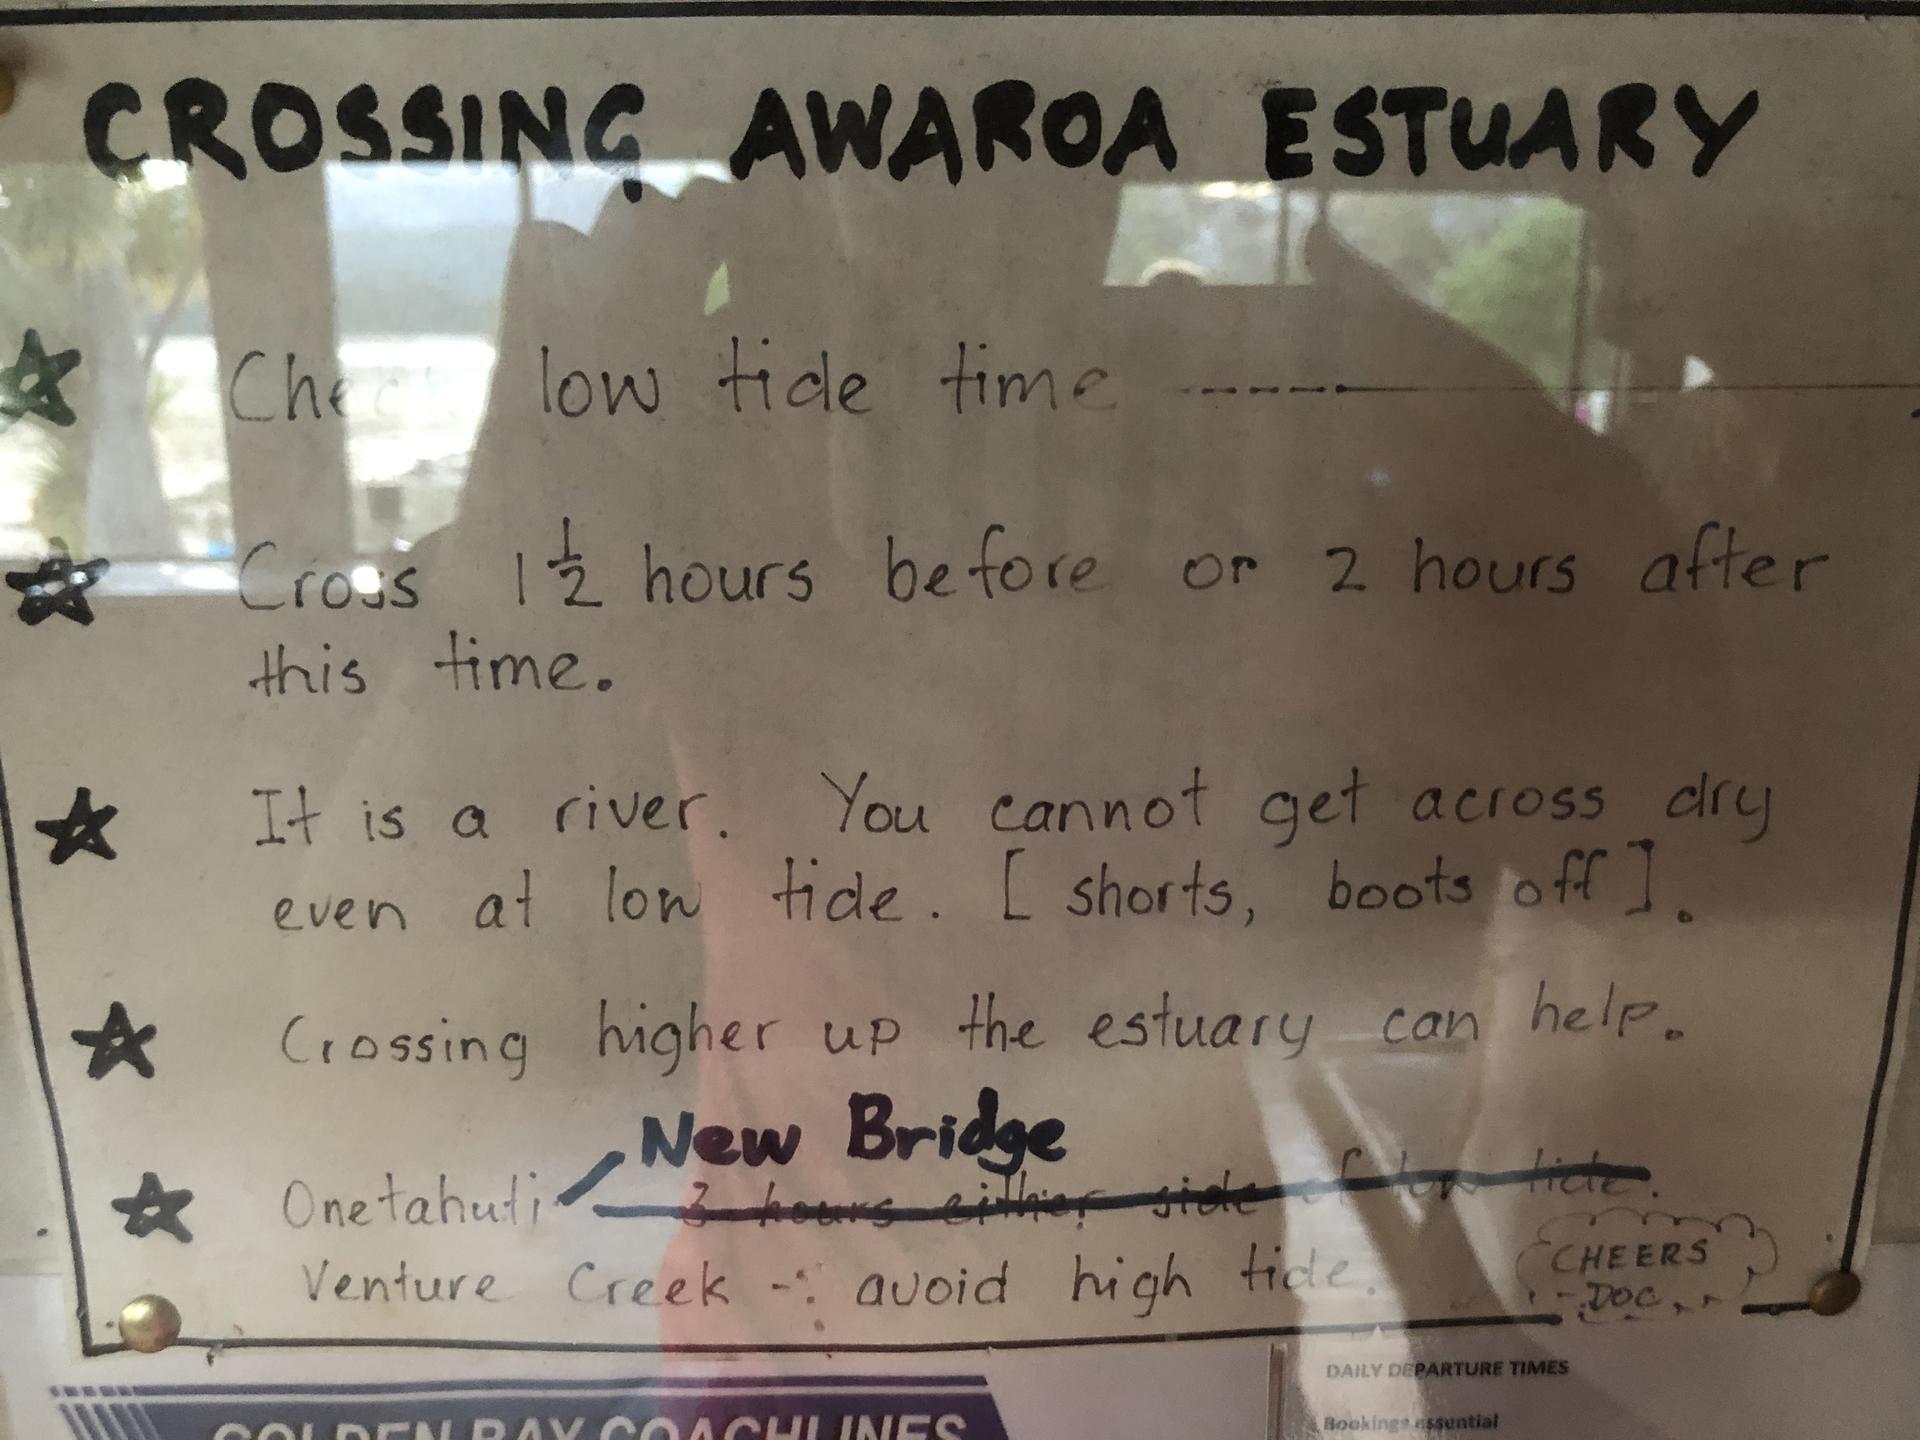 CROSSING AWAROA ESTUARY
☆ Check low tide time -----
☆ Cross 1 1/2 hours before or 2 hours after
this time.
☆ It is a river. You cannot get across dry
even at low tide. [ shorts, boots off ].
☆ Crossing higher up the estuary can help.
New Bridge
☆ Onetahuti 3 hours either side of low tide.
Venture Creek -: avoid high tide.
CHEERS
-DOC
GOLDEN BAY COACHLINES
DAILY DEPARTURE TIMES
Bookings essential